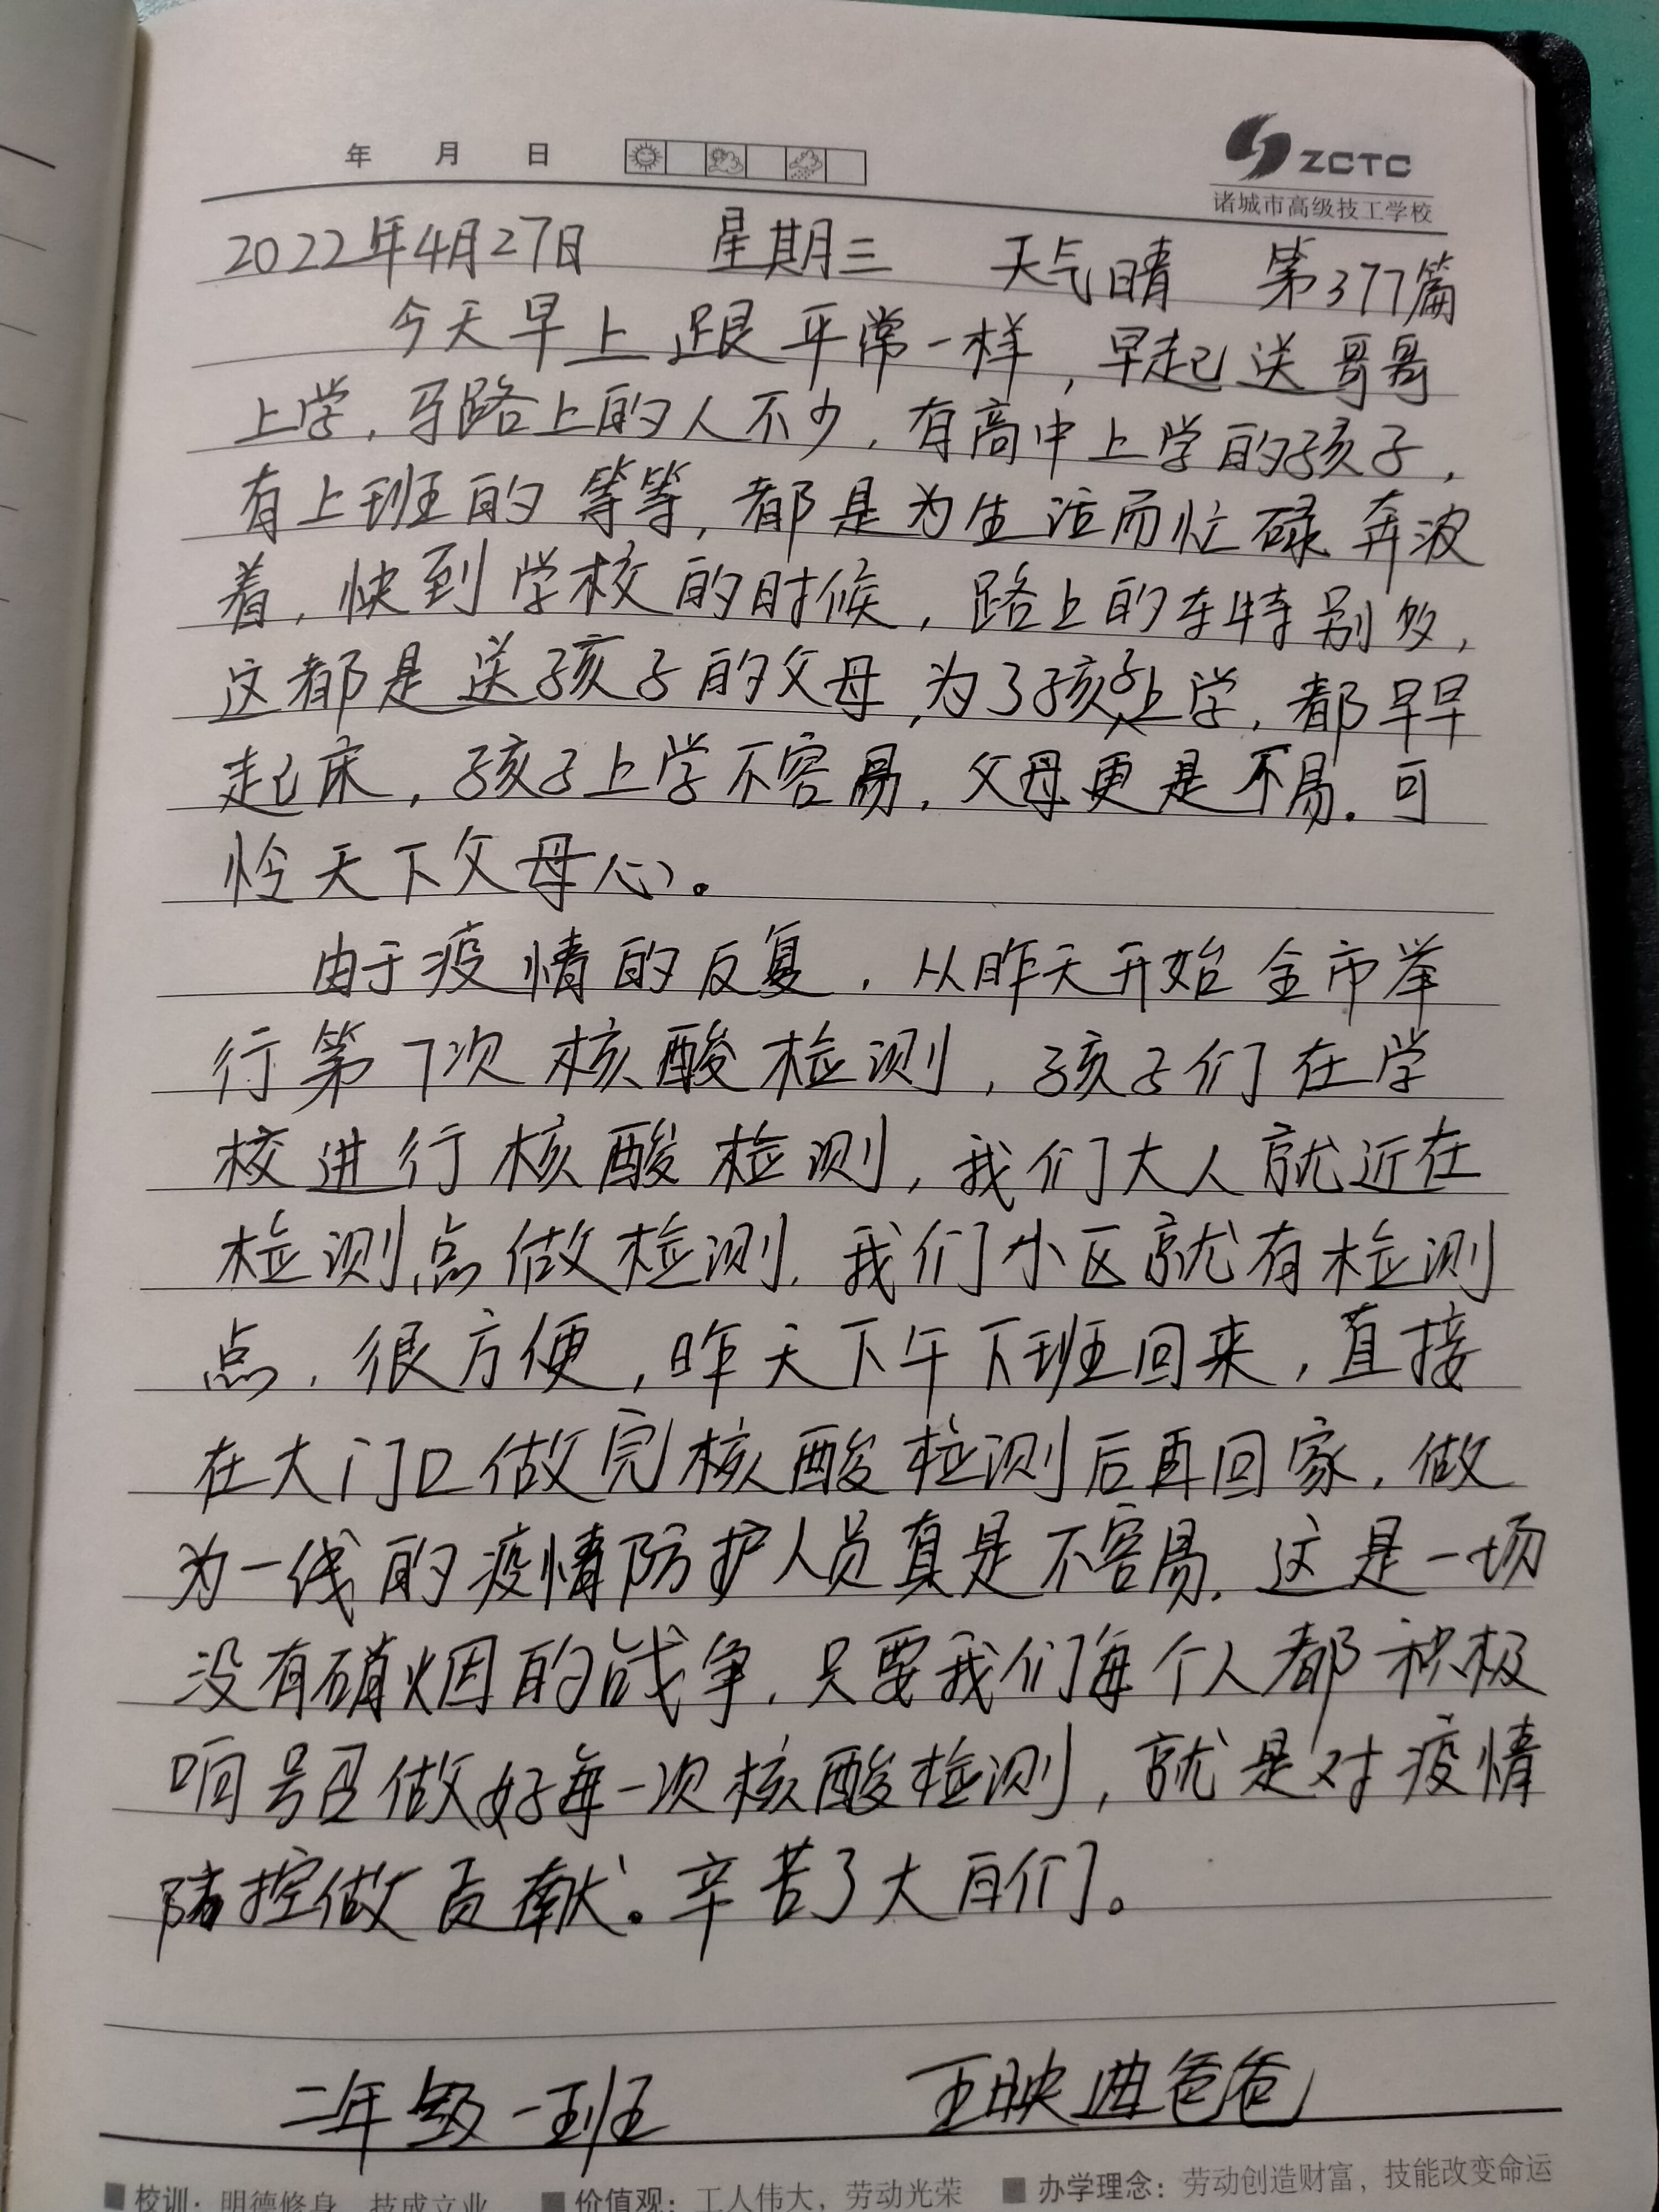 年 月 日
ZCTC
诸城市高级技工学校
2022年4月27日 星期三 天气晴 第377篇
今天早上跟平常一样,早起送哥哥
上学,马路上的人不少,有高中上学的孩子,
有上班的等等,都是为生活而忙碌奔波
着,快到学校的时候,路上的车特别多,
这都是送孩子的父母,为了孩子上学,都早早
起床,孩子上学不容易,父母更是不易。可
怜天下父母心。
由于疫情的反复,从昨天开始全市举
行第7次核酸检测,孩子们在学
校进行核酸检测,我们大人就近在
检测点做检测,我们小区就有检测
点,很方便,昨天下午下班回来,直接
在大门口做完核酸检测后再回家,做
为一线的疫情防护人员真是不容易,这是一场
没有硝烟的战争,只要我们每个人都积极
响号召做好每一次核酸检测,就是对疫情
防控做贡献。辛苦了大白们。
二年级一班 王映典爸爸
■校训:明德修身 技成立业 ■价值观:工人伟大,劳动光荣 ■办学理念:劳动创造财富,技能改变命运